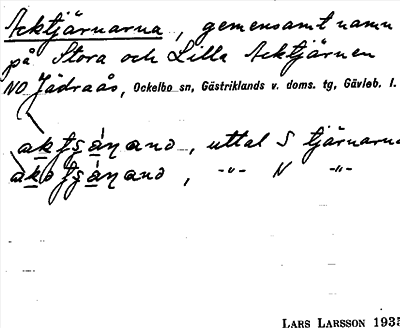 Acktjärnarna, gemensamt namn
på Stora och Lilla Acktjärnen
NO Jädraås, Ockelbo sn, Gästriklands v. doms. tg, Gävleb. l.
uttal S tjärnarna
, -"- N -"-
LARS LARSSON 1935